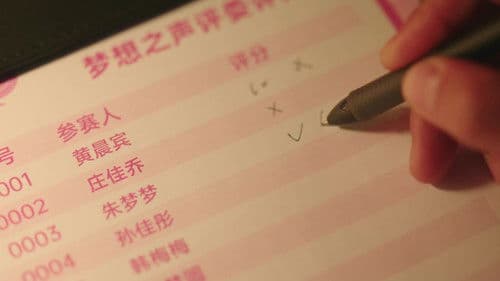 梦想之声评委评
号 参赛人 评分
0001 黄晨宾
0002 庄佳乔
0003 朱梦梦
0004 孙佳彤
韩梅梅